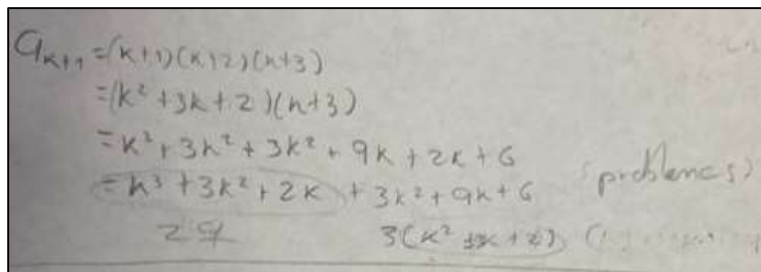 a_{k+1} = (k+1)(k+2)(k+3)
= (k² + 3k + 2)(k+3)
= k³ + 3k² + 3k² + 9k + 2k + 6
= k³ + 3k² + 2k + 3k² + 9k + 6 (problemas)
2q 3(k² + 3k + 2)